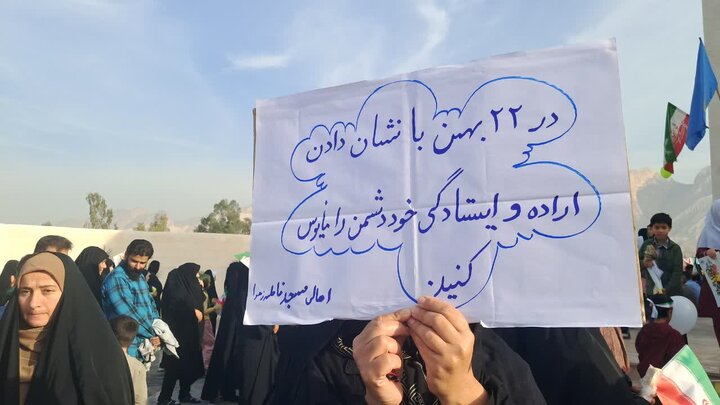 در ۲۲ بهمن با نشان دادن
اراده و ایستادگی خود دشمن را مایوس
کنید.
اهالی مسجد فاطمه زهرا